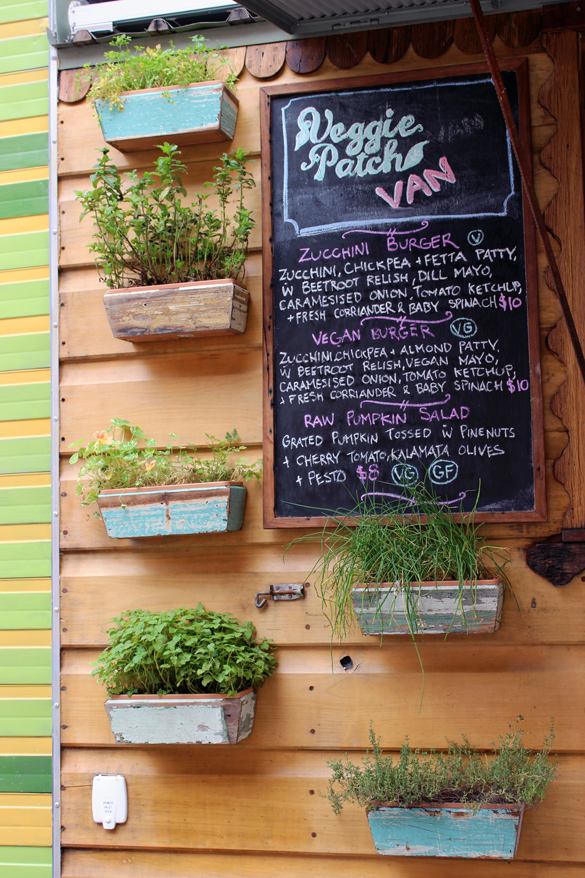 Veggie
Patch
VAN
ZUCCHINI BURGER V
ZUCCHINI, CHICKPEA + FETTA PATTY,
W BEETROOT RELISH, DILL MAYO,
CARAMESISED ONION, TOMATO KETCHUP,
+ FRESH CORRIANDER & BABY SPINACH $10
VEGAN BURGER VG
ZUCCHINI, CHICKPEA + ALMOND PATTY,
W BEETROOT RELISH, VEGAN MAYO,
CARAMESISED ONION, TOMATO KETCHUP,
+ FRESH CORRIANDER & BABY SPINACH $10
RAW PUMPKIN SALAD
GRATED PUMPKIN TOSSED W PINENUTS
+ CHERRY TOMATO, KALAMATA OLIVES
+ PESTO $8 VG GF